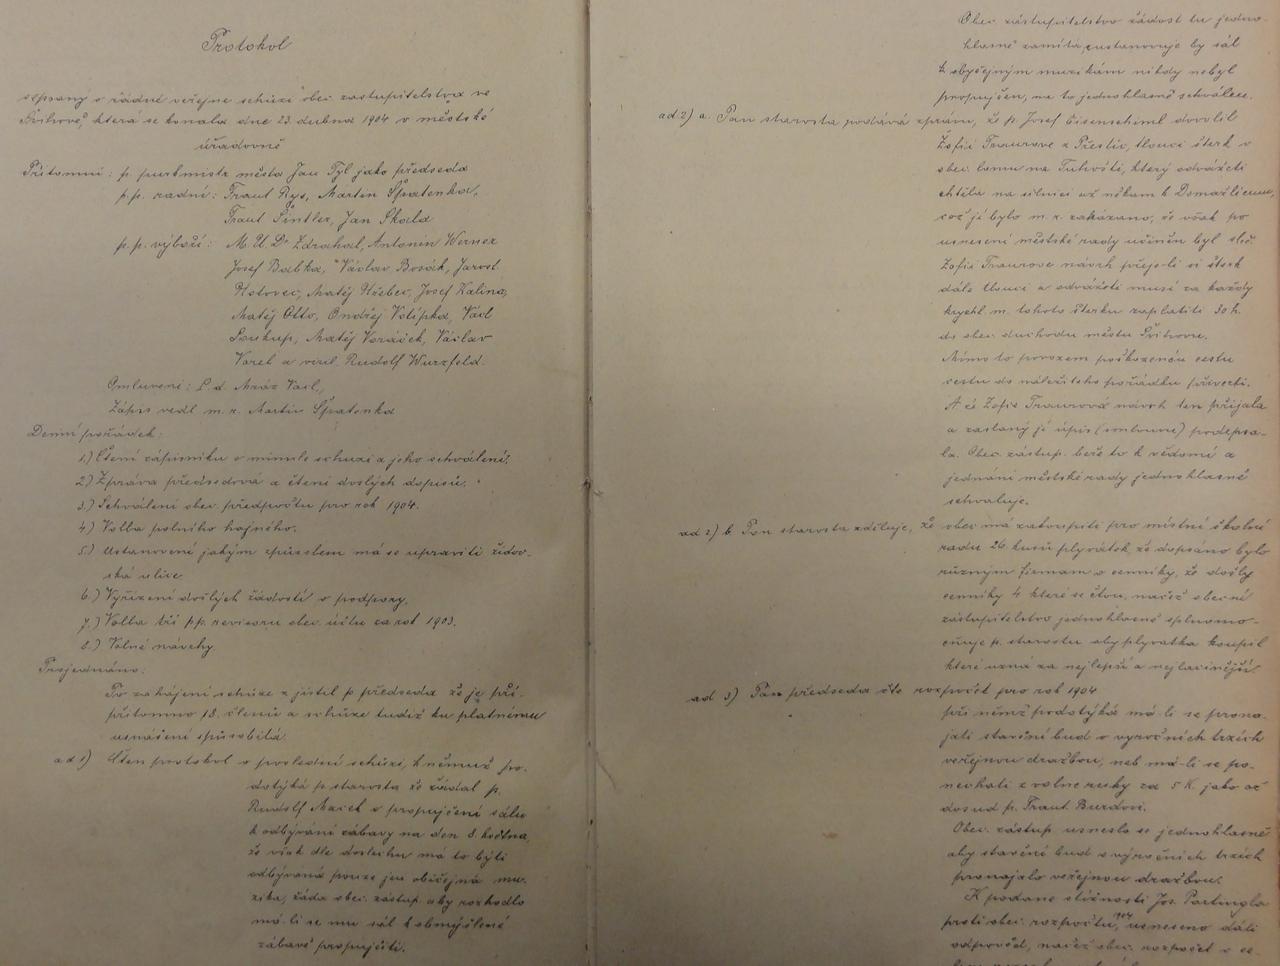 Protokol
sepsaný o řádné veřejné schůzi obec. zastupitelstva ve
Švihově, která se konala dne 23. dubna 1904 v městské
úřadovně
Přítomni: p. purkmistr města Jan Tyl jako předseda
p.p. radní: Frant Rys, Martin Špatenka,
Frant Šintler, Jan Skala
p.p. výboři: M. U. Dr Zdrahal, Antonín Werner
Josef Babka, Václav Bosák, Jarosl.
Hstovec, Matěj Hřebec, Josef Kalina,
Matěj Otto, Ondřej Volípka, Václ
Soukup, Matěj Voráček, Václav
Vorel a viril. Rudolf Wurzfeld.
Omluveni: P. d. Mráz Václ,
Zápis vedl m. r. Martin Špatenka
Denní pořádek:
1.) Čtení zápisníku o minulé schůzi a jeho schválení.
2.) Zpráva předsedová a čtení došlých dopisů.
3.) Schválení obec. předpočtu pro rok 1904.
4.) Volba polního hajného.
5.) Ustanovení jakým způsobem má se upraviti židov-
ská ulice
6.) Vyřízení došlých žádostí o podpory.
7.) Volba tří p.p. revisorů obec. účtu za rok 1903.
8.) Volné návrhy
Projednáno:
Po zahájení schůze zjistil p předseda že je pří-
přítomno 18. členů a schůze tudíž ku platnému
usnášení způsobilá.
ad 1) Čten protokol o poslední schůzi, k němuž po-
dotýká p. starosta že žádal p.
Rudolf Macek o propujčení sálu
k odbývání zábavy na den 8. května,
že však dle doslechu má to býti
odbývaná pouze jen obyčejná mu-
zika, žádá obec. zástup. aby rozhodlo
má-li se mu sál k obmyšlené
zábavě propujčiti.
Obec. zástupitelstvo žádost tu jedno-
hlasně zamítá, ustanovuje by sál
k obyčejným muzikám nikdy nebyl
propujčen, na to jednohlasně schválen.
ad 2) a. Pan starosta podává zprávu, že p. Josef Eisenschiml dovolil
Žofii Traurové z Přeštic, tlouci štěrk v
obec. lomu na Tuhošti, který odvážeti
chtěla na silnici až někam k Domažlicům,
což jí bylo m. r. zakázáno, že však po
usnesení městské rady učiněn byl sleč.
Žofii Traurové návrh přeje-li si štěrk
dále tlouci a odvážeti musí za každý
krychl. m. tohoto štěrku zaplatiti 30 h.
do obec. duchodu městu Švihovu.
Mimo to povozem poškozenou cestu
cestu do náležitého pořádku přivésti.
A že Žofie Traurová návrh ten přijala
a zaslaný jí úpis (smlouvu) podepsa-
la. Obec. zástup. beře to k vědomí a
jednání městské rady jednohlasně
schvaluje.
ad 2) b. Pan starosta sděluje, že obec má zakoupiti pro místní školní
radu 26 kusů plyvátek, že dopsáno bylo
různým firmam o cenníky, že došly
cenníky 4 které se čtou, načež obecné
zástupitelstvo jednohlasně splnomo-
cňuje p. starostu aby plyvátka koupil
které uzná za nejlepší a nejlacinější.
ad 3) Pan předseda čte rozpočet pro rok 1904
při němž podotýká má-li se prona-
jati stavění bud o výročních trzích
veřejnou dražbou, neb má-li se po-
nechati z volné ruky za 5 K. jako až
dosud p. Frant Burdovi.
Obec. zástup. usneslo se jednohlasně
aby stavění bud o výročních trzích
pronajalo veřejnou dražbou.
K podané stížnosti Jos. Partingla
proti obec. rozpočtu, 1904 usneseno dáti
odpověď, načež obec. rozpočet v ce-